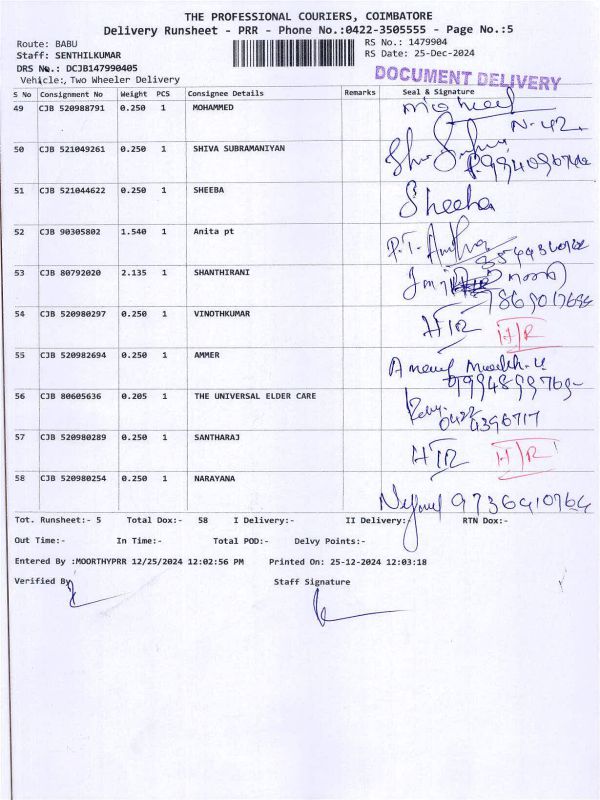 THE PROFESSIONAL COURIERS, COIMBATORE
Delivery Runsheet - PRR - Phone No.:0422-3505555 - Page No.:5
Route: BABU RS No.: 1479904
Staff: SENTHILKUMAR RS Date: 25-Dec-2024
DRS No.: DCJB147990405
Vehicle:, Two Wheeler Delivery
DOCUMENT DELIVERY
S No Consignment No Weight PCS Consignee Details Remarks Seal & Signature
49 CJB 520988791 0.250 1 MOHAMMED
N-42
50 CJB 521049261 0.250 1 SHIVA SUBRAMANIYAN
51 CJB 521044622 0.250 1 SHEEBA Sheeba
52 CJB 90305802 1.540 1 Anita pt P.T.
53 CJB 80792020 2.135 1 SHANTHIRANI
54 CJB 520980297 0.250 1 VINOTHKUMAR HIR HIR
55 CJB 520982694 0.250 1 AMMER
56 CJB 80605636 0.205 1 THE UNIVERSAL ELDER CARE
0422
4396717
57 CJB 520980289 0.250 1 SANTHARAJ HIR HIR
58 CJB 520980254 0.250 1 NARAYANA
Tot. Runsheet:- 5 Total Dox:- 58 I Delivery:- II Delivery:- RTN Dox:-
Out Time:- In Time:- Total POD:- Delvy Points:-
Entered By :MOORTHYPRR 12/25/2024 12:02:56 PM Printed On: 25-12-2024 12:03:18
Verified By Staff Signature